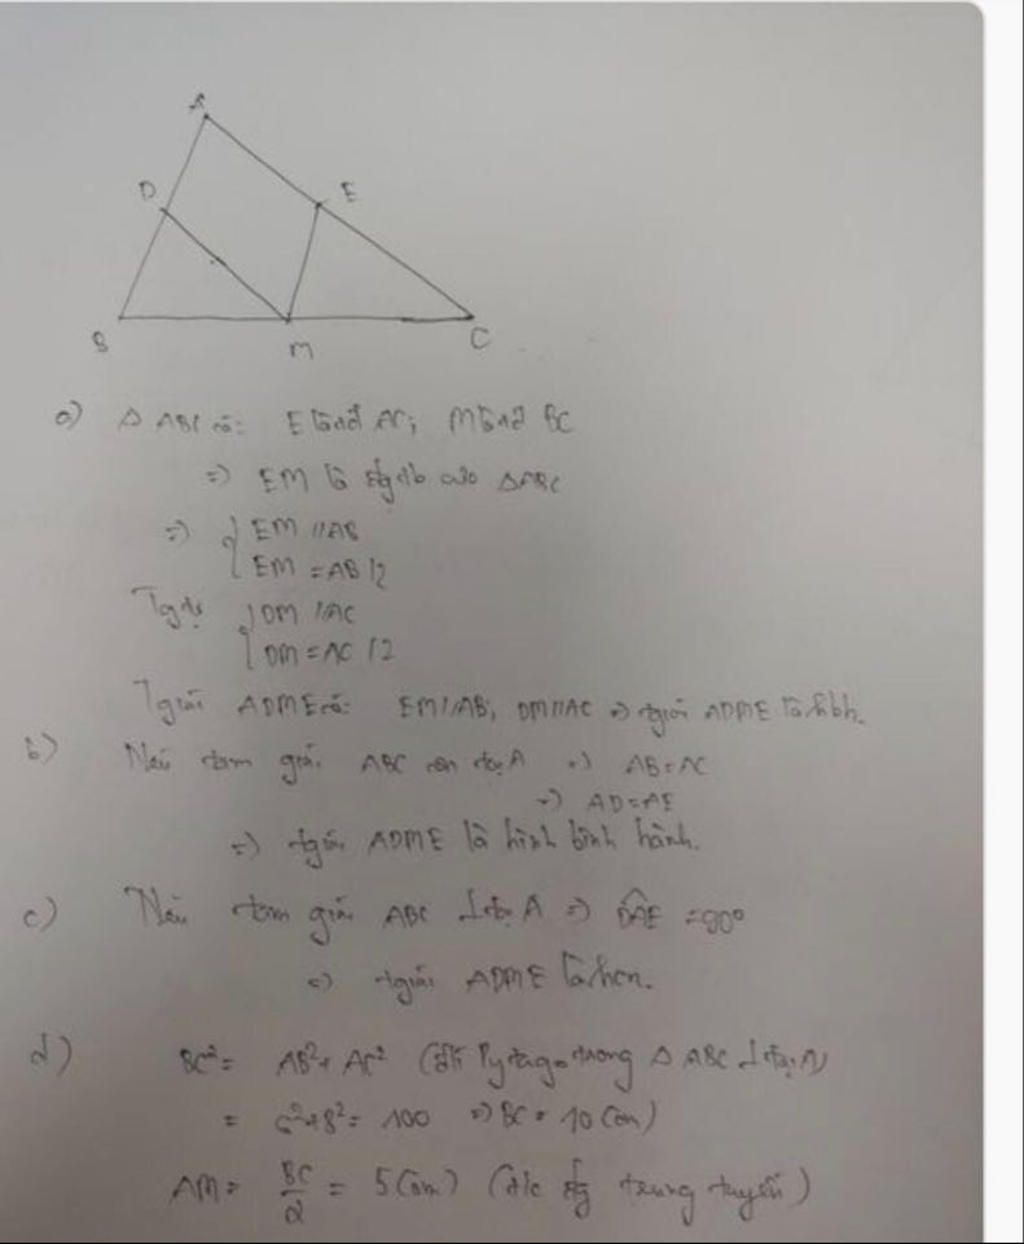 A
D
E
B
M
C
a) Δ ABC có: E là tđ AC; M là tđ BC
=> EM là đg tb của ΔABC
=> { EM // AB
EM = AB/2
Tg tự { DM // AC
DM = AC/2
Tgiác ADME có: EM//AB, DM//AC => tgiác ADME là hbh.
b) Nếu tam giác ABC cân tại A => AB = AC
=> AD = AE
=> tgiác ADME là hình bình hành.
c) Nếu tam giác ABC ⊥ tại A => DÂE = 90°
=> tgiác ADME là hcn.
d) BC² = AB² + AC² (đlí Pytago trong Δ ABC ⊥ tại A)
= 6² + 8² = 100 => BC = 10 (cm)
AM = BC/2 = 5 (cm) (t/c đg trung tuyến)